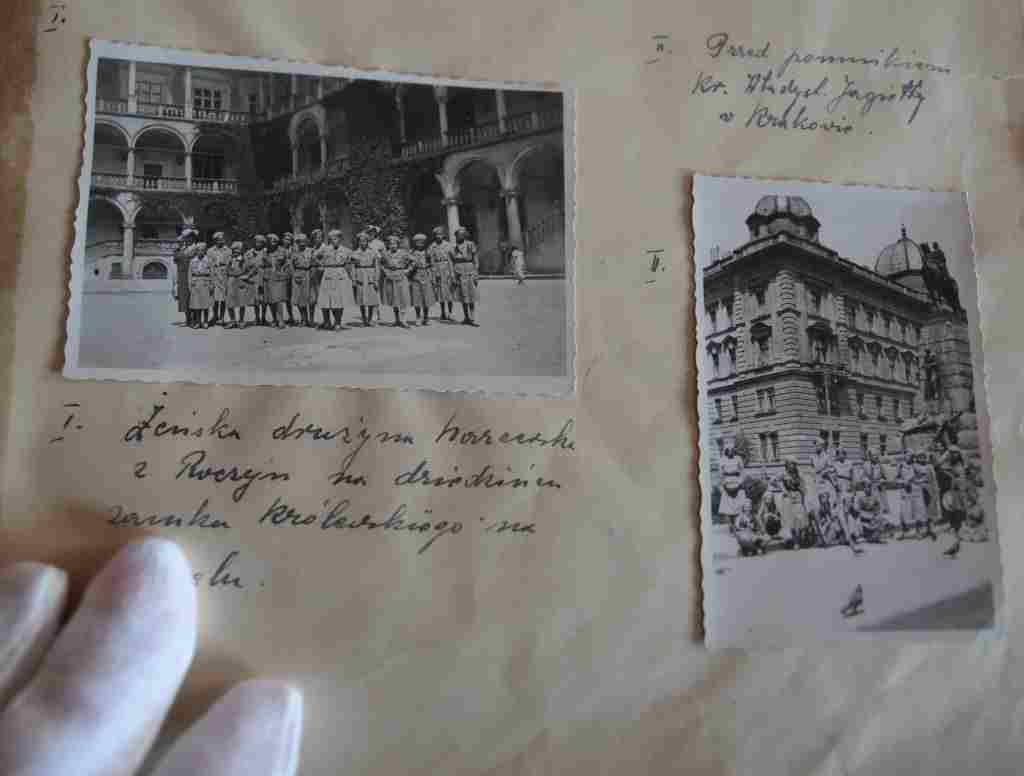 I.
II. Przed pomnikiem
Kr. Władysł. Jagiełły
w Krakowie.
II.
I. Żeńska drużyna harcerska
z Roczyn na dziedzińcu
zamku Królewskiego na
elu.